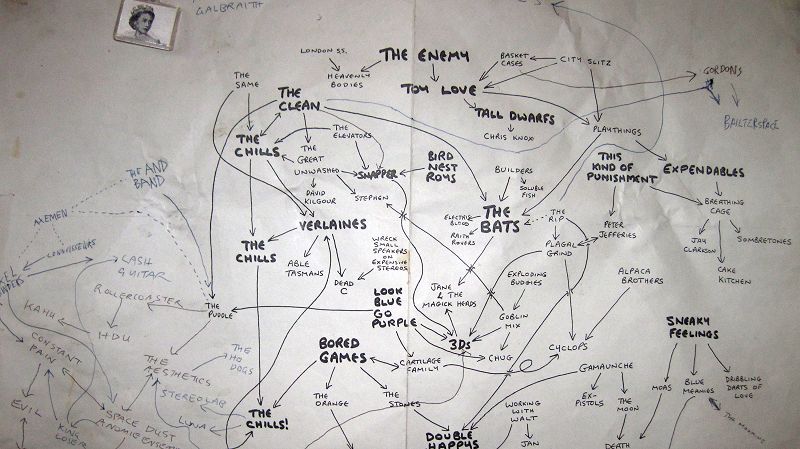 GALBRAITH
LONDON SS.
THE ENEMY
BASKET
CASES
CITY SLITZ
GORDONS
BAILTERSPACE
THE
SAME
HEAVENLY
BODIES
TOY LOVE
THE
CLEAN
TALL DWARFS
CHRIS KNOX
PLAYTHINGS
THE
CHILLS
THE
ELEVATORS
THE
GREAT
UNWASHED
SNAPPER
BIRD
NEST
ROYS
BUILDERS
SOLUBLE
FISH
THIS
KIND OF
PUNISHMENT
EXPENDABLES
THE AND
BAND
DAVID
KILGOUR
STEPHEN
BREATHING
CAGE
AXEMEN
VERLAINES
ELECTRIC
BLOOD
THE
BATS
THE
RIP
PETER
JEFFERIES
RAITH
ROVERS
JAY
CLARKSON
SOMBRETONES
CONNOISSEURS
THE
CHILLS
ABLE
TASMANS
WRECK
SMALL
SPEAKERS
ON
EXPENSIVE
STEREOS
PLAGAL
GRIND
CASH
GUITAR
DEAD
C
EXPLODING
BUDGIES
ALPACA
BROTHERS
CAKE
KITCHEN
ROLLERCOASTER
THE
PUDDLE
LOOK
BLUE
GO
PURPLE
JANE & THE
MAGICK HERDS
GOBLIN
MIX
KAHU
HDU
SNEAKY
FEELINGS
CONSTANT
PAIN
THE
AESTHETICS
THE
HO
DOGS
BORED
GAMES
3Ds
CHUG
CYCLOPS
CARTILAGE
FAMILY
GAMAUNCHE
STEREOLAB
MOAS
BLUE
MEANIES
DRIBBLING
DARTS OF
LOVE
EVIL
KING
LOSER
SPACE DUST
LUNA
THE
CHILLS!
THE
ORANGE
THE
STONES
WORKING
WITH
WALT
EX-
PISTOLS
THE
MOON
DOUBLE
HAPPYS
JAN
DEATH